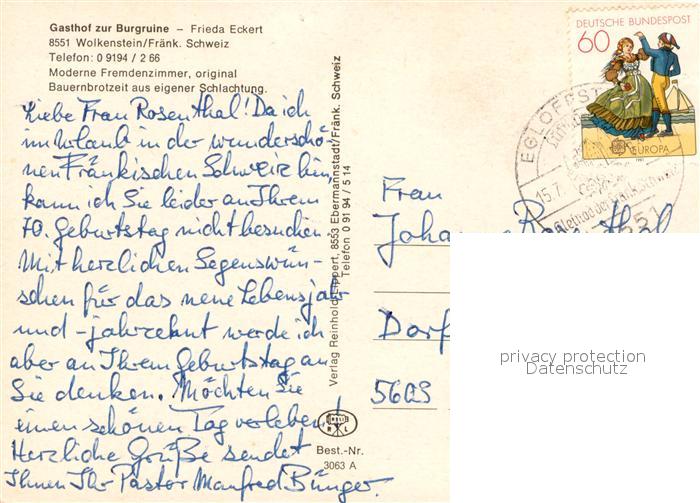 Gasthof zur Burgruine – Frieda Eckert
8551 Wolkenstein/Fränk. Schweiz
Telefon: 0 91 94 / 2 66
Moderne Fremdenzimmer, original
Bauernbrotzeit aus eigener Schlachtung.
Liebe Frau Rosenthal! Da ich
im Urlaub in der wunderschö-
nen Fränkischen Schweiz bin,
kann ich Sie leider an Ihrem
70. Geburtstag nicht besuchen.
Mit herzlichen Segenswün-
schen für das neue Lebensjahr
und -jahrzehnt werde ich
aber an Ihrem Geburtstag an
Sie denken. Möchten Sie
einen schönen Tag verleben!
Herzliche Grüße sendet
Ihnen Ihr Pastor Manfred Bünger.
Verlag Reinhold Lippert, 8553 Ebermannstadt/Fränk. Schweiz
Telefon 0 91 94 / 5 14
RELI
R L
Best.-Nr.
3063 A
DEUTSCHE BUNDESPOST
60
EUROPA
1981
EGLOFFST
15.7.
8551
Frau
Joha Rosenthal
Dorf
5609
privacy protection
Datenschutz